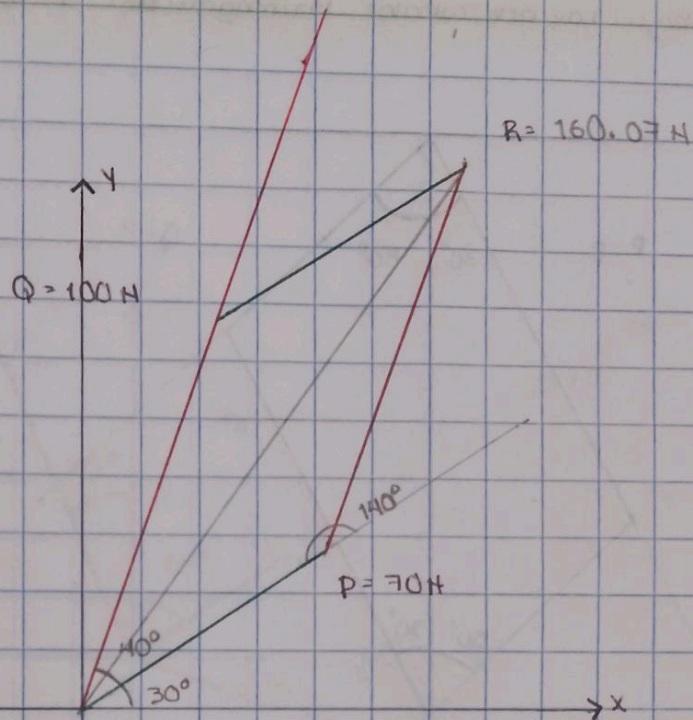 R= 160.07 N
Y
Q = 100 N
140°
P = 70 N
40°
30°
X